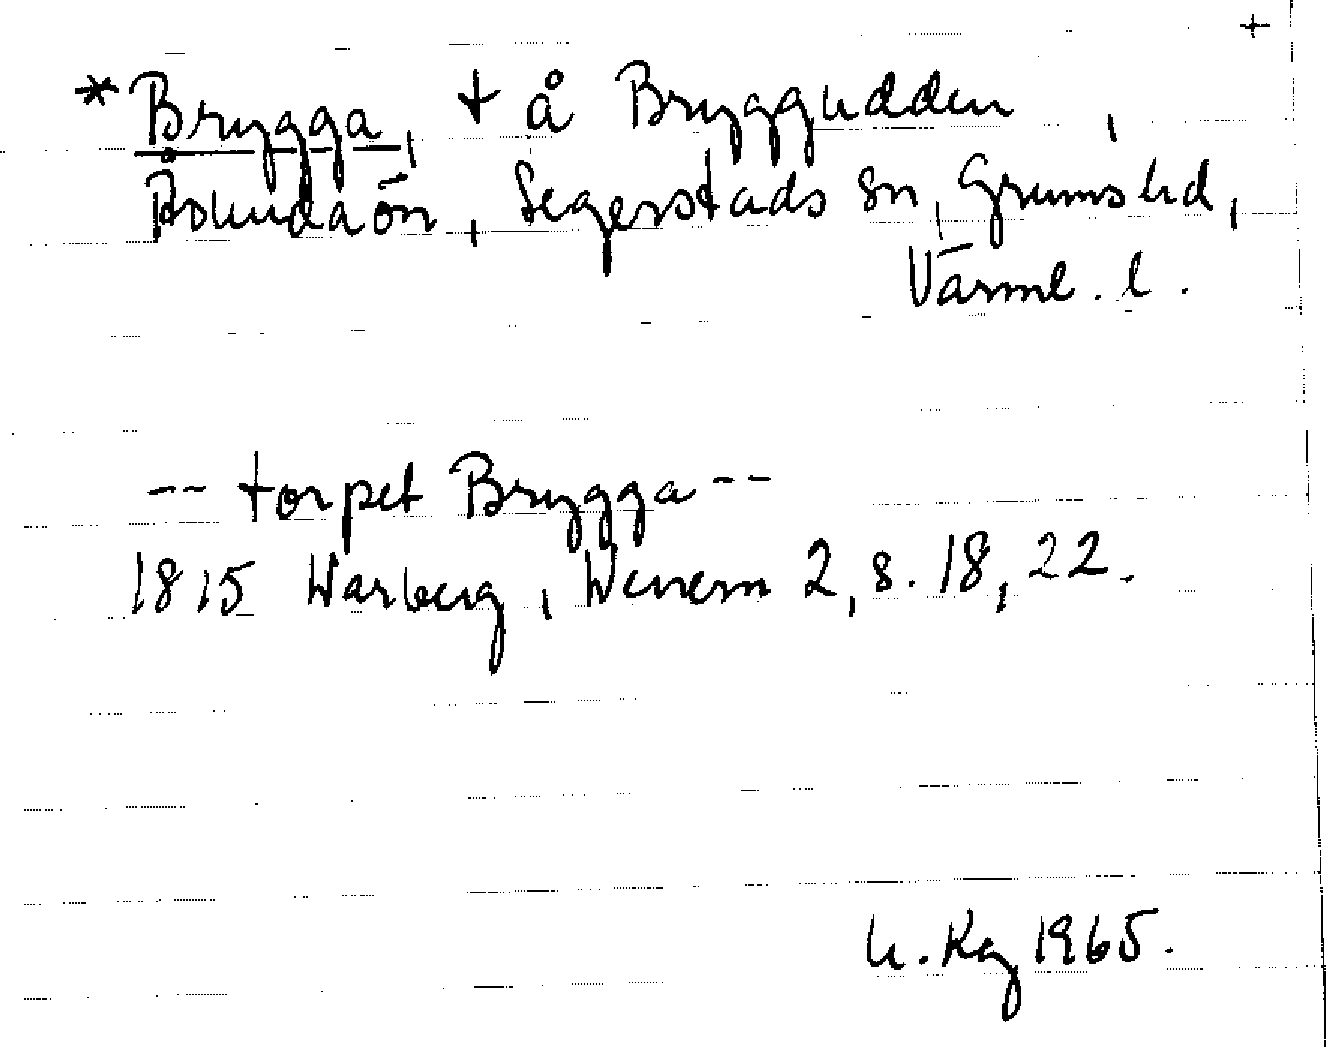 +
*Brygga, t å Bryggudden,
Segerstads sn, Grums hd,
Värml. l.
-- torpet Brygga --
1815 Warberg, Wenern 2, s. 18, 22.
Kg 1965.